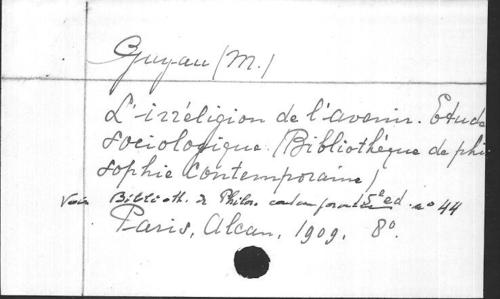 Guyau (M.)
L'irréligion de l'avenir. Etude
sociologique. (Bibliothèque de phi
sophie contemporaine)
Voir Biblioth. de Philos. contemporaine 5e ed. no 44
Paris, Alcan, 1909. 8o.